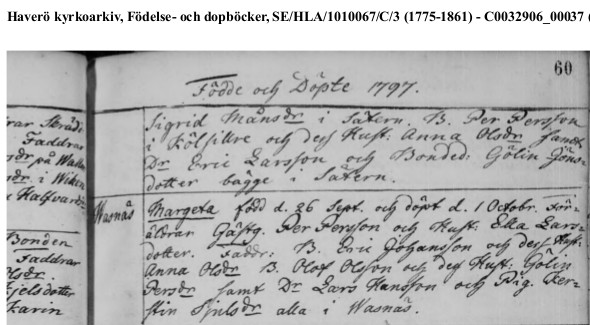 Haverö kyrkoarkiv, Födelse- och dopböcker, SE/HLA/1010067/C/3 (1775-1861) - C0032906_00037 (
60
Födde och Döpte 1797.
Sigrid Månsdr i Sätern. B. Per Persson
i Kölsillre och des Hust: Anna Olsdr samt
Dr Eric Larsson och Bonded: Gölin Jöns-
dotter bägge i Sätern.
Wasnäs
Margeta född d. 26 Sept. och döpt d. 1 Octobr. För-
äldrar Gästg. Per Persson och Hust: Ella Lars-
dotter. Faddr: B. Eric Johansson och des Hust:
Anna Olsdr B. Olof Olsson och des Hust: Gölin
Persdr samt Dr Lars Hansson och Pig. Ker-
stin Kjelsdr alla i Wasnäs.
Faddrar
på
i
Bonden
Faddrar
Olsdr.
Kjelsdotter
Karin